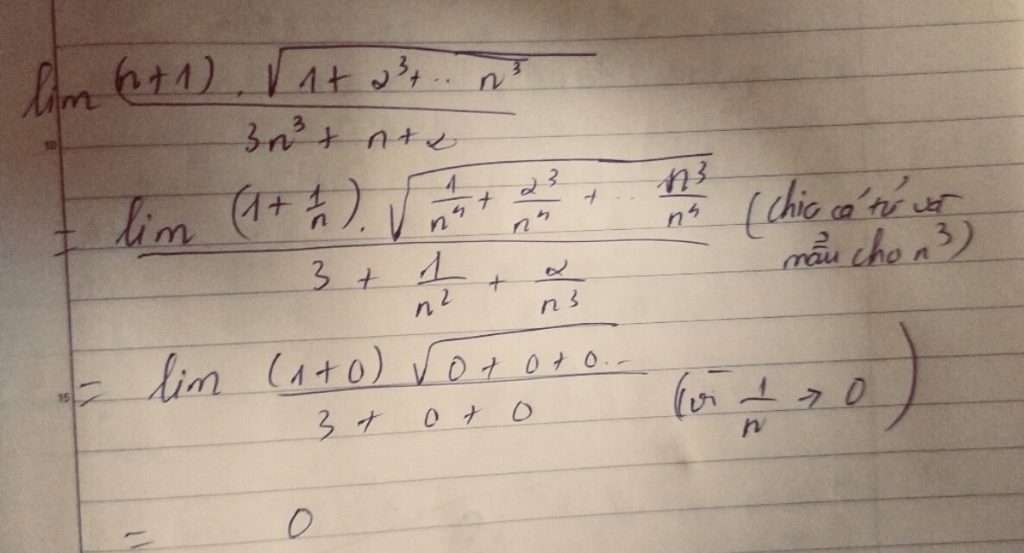 lim (n+1).√(1 + 2³ + .. n³) / (3n³ + n + 2)
= lim (1 + 1/n).√(1/n⁴ + 2³/n⁴ + .. n³/n⁴) / (3 + 1/n² + 2/n³) (chia cả tử và mẫu cho n³)
= lim (1+0) √(0 + 0 + 0..) / (3 + 0 + 0) (vì 1/n → 0)
= 0